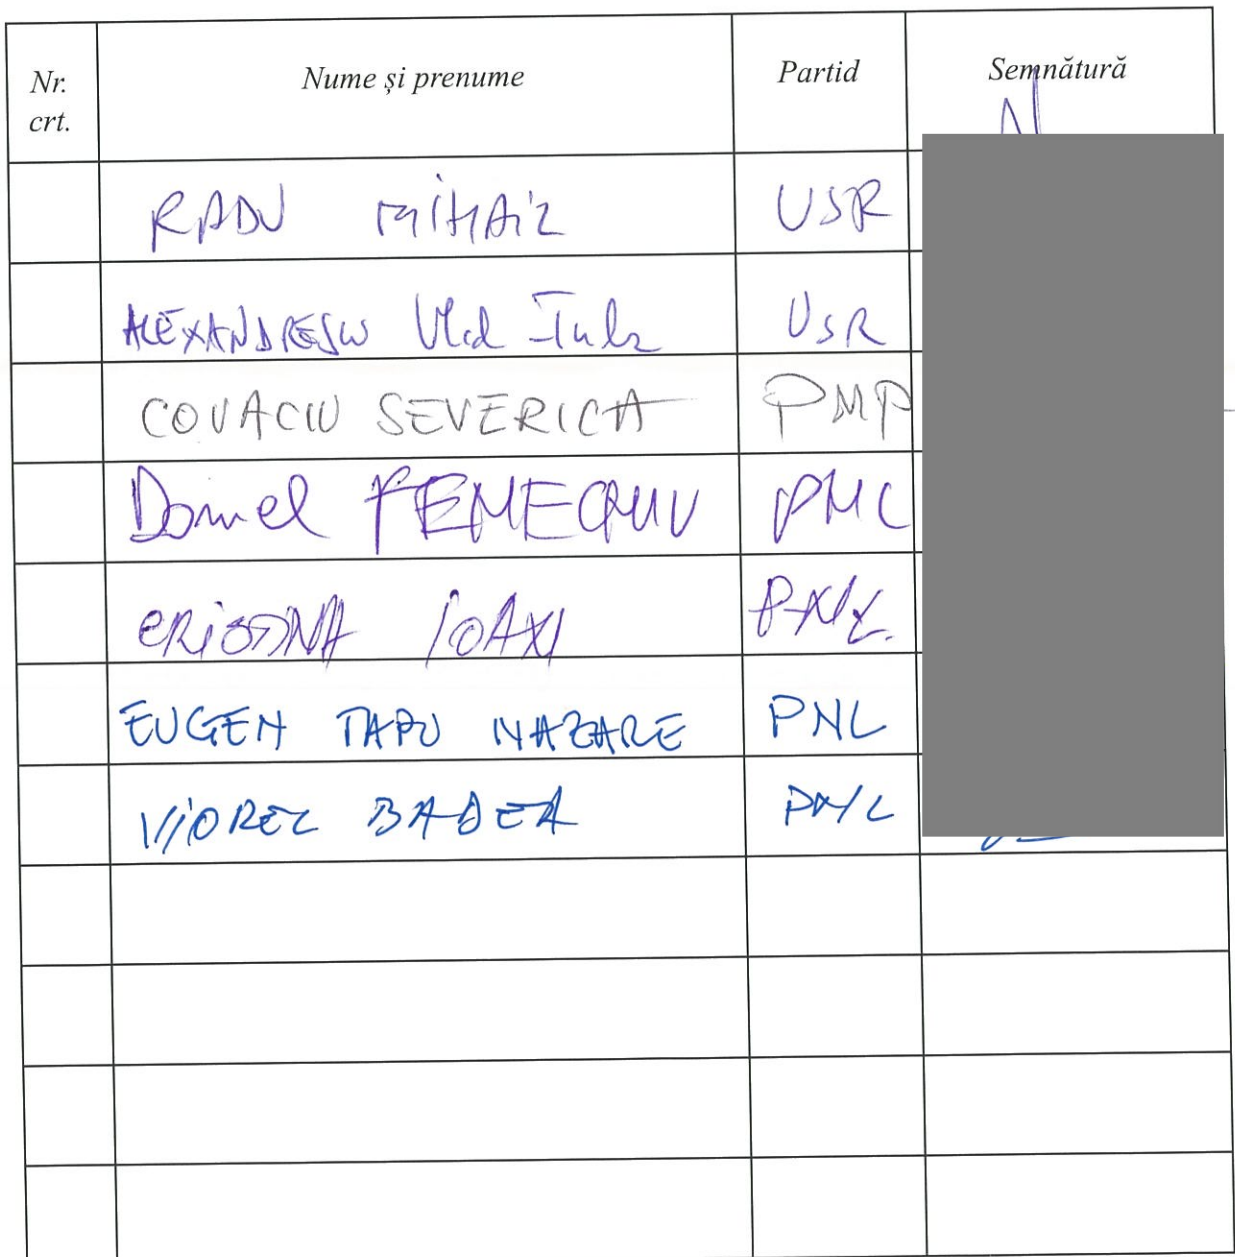 Nr. crt. Nume și prenume Partid Semnătură
RADU MIHAIL USR
ALEXANDRESCU Vlad Tudor USR
COVACIU SEVERICA PMP
Daniel PNL
CRISTINA IOAN PNL
EUGEN TAPU NAZARE PNL
VIOREL BADEA PNL